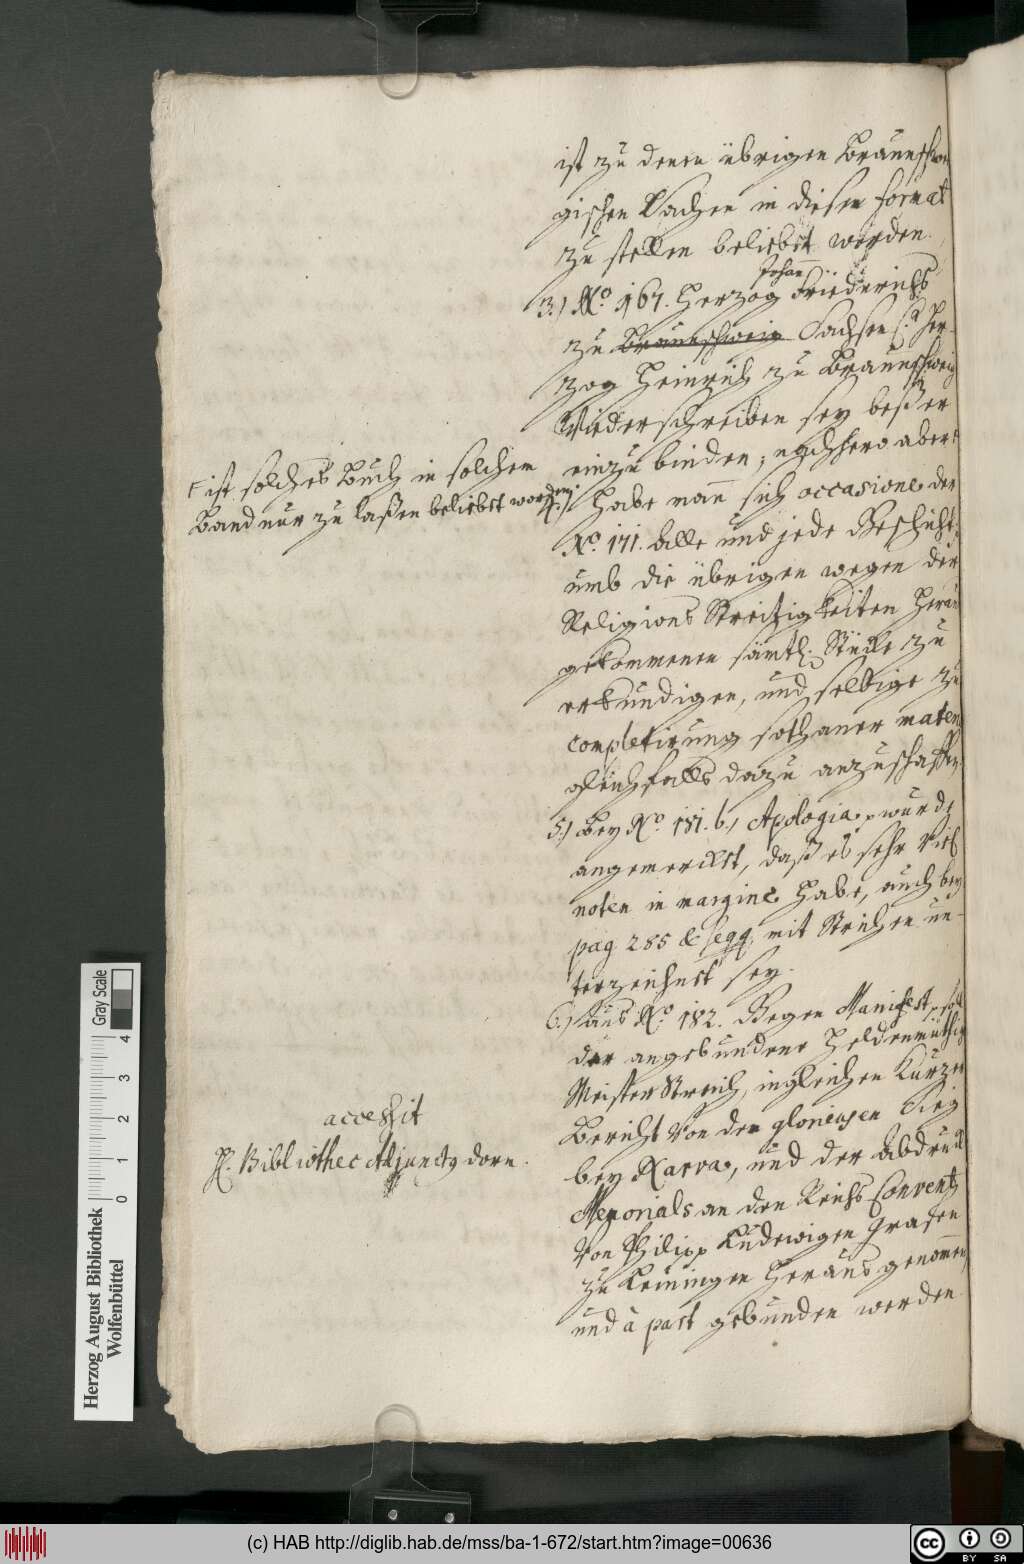 ist zu denen übrigen Braunschwei
gischen Sachen in diesen format
zu stellen beliebet worden.
3.) No. 167. Herzog Johann Friederichs
zu Braunschweig Sachsen Her-
zog Heinrich zu Braunschweig
Wiederschreiben sey beßer
einzubinden, nachhero aber
ist solches Buch in solchem
Band nur zu laßen beliebet worden.
4.) Habe man sich occasione der
No. 171. alle und jede Geschicht:
umb die übrigen wegen der
Religions Streitigkeiten heraus
gekommenen sämtl. Stücke zu
erkundigen, und selbige zu
completirung sothaner materi
gleichfalls dazu anzuschaffen
5.) Bey No. 181. b, Apologia, wurde
angemercket, daß es sehr viel
noten in margine habe, auch bey
pag 285 & seqq. mit Strichen un-
terzeichnet sey.
6.) aus No. 182. Gegen Manifest, soll
der angebundene Heldenmüthig
Meister Streich, ingleichen Kurzer
Bericht von der glorieusen Sieg
bey Narva, und der abdruck
Memorials an den Reichs Convent
von Philipp Ludewigen Grafen
zu Leiningen herausgenommen
und à part gebunden werden
accessit
H. Bibliothec Adjunctg dorn.
Herzog August Bibliothek
Wolfenbüttel
Gray Scale
0 1 2 3 4
(c) HAB http://diglib.hab.de/mss/ba-1-672/start.htm?image=00636
cc BY SA